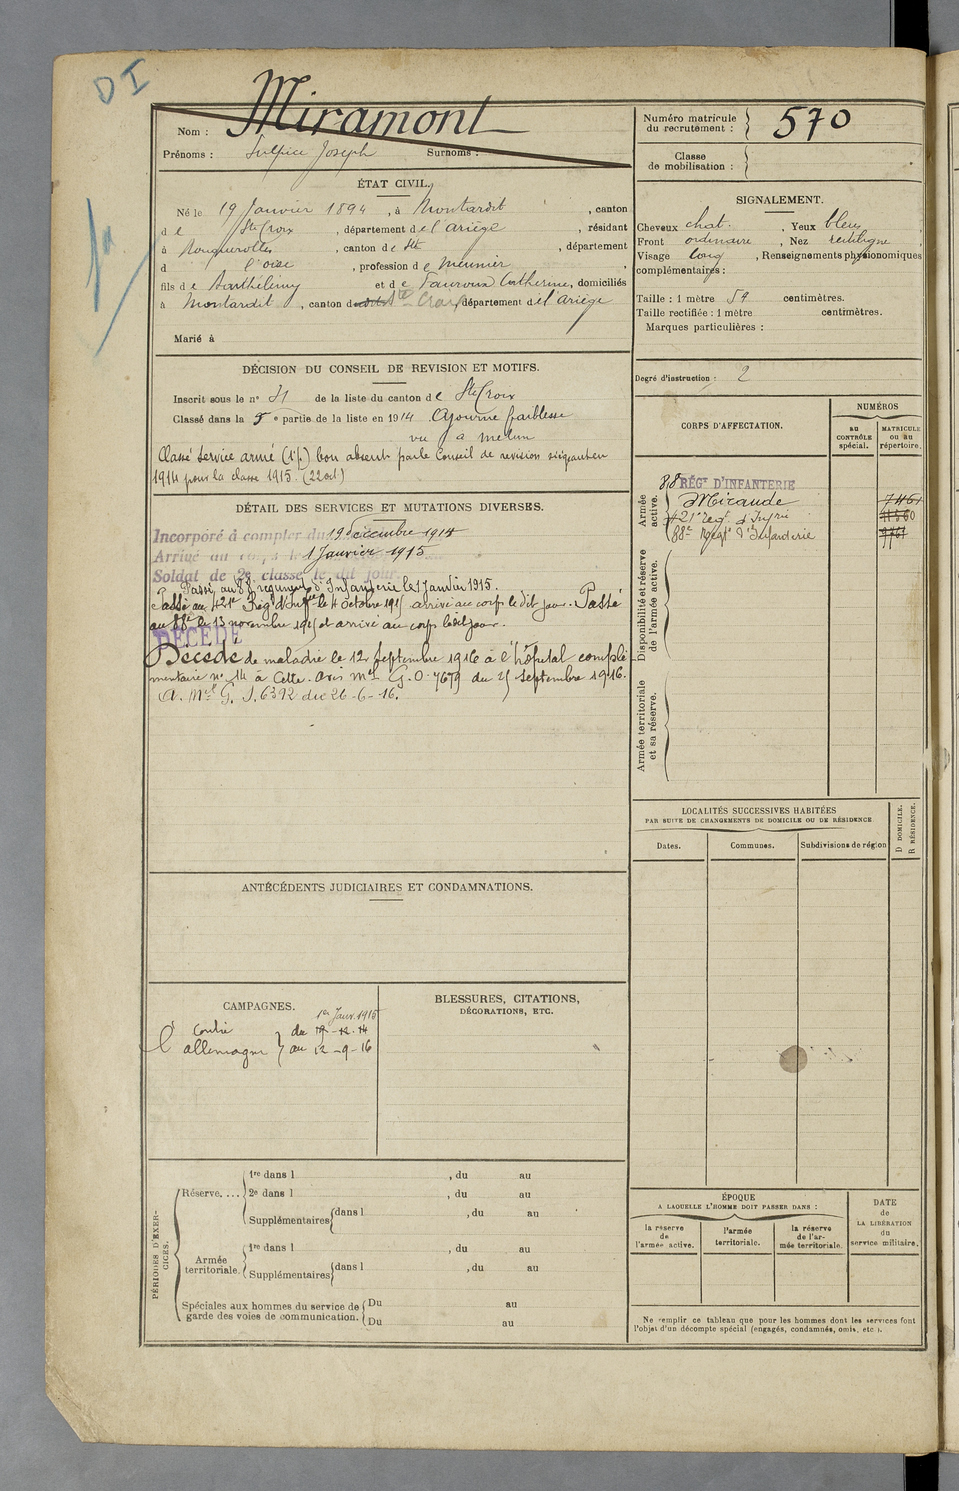 D I
Nom : Miramont
Prénoms : Sulpice Joseph Surnoms :
Numéro matricule
du recrutement : 570
Classe
de mobilisation :
ÉTAT CIVIL.
Né le 19 Janvier 1894, à Montardit, canton
de Ste Croix, département de l'Ariège, résidant
à , canton de , département
d l'oise, profession de meunier,
fils de Barthélemy et de Fauroux Catherine, domiciliés
à Montardit, canton de Ste Croix, département de l'Ariège
Marié à
SIGNALEMENT.
Cheveux chat. , Yeux bleus ,
Front ordinaire , Nez rectiligne ,
Visage long , Renseignements physionomiques
complémentaires :
Taille : 1 mètre 59 centimètres.
Taille rectifiée : 1 mètre centimètres.
Marques particulières :
Degré d'instruction : 2
DÉCISION DU CONSEIL DE REVISION ET MOTIFS.
Inscrit sous le n° 31 de la liste du canton de Ste Croix
Classé dans la 5e partie de la liste en 1914 Ajourné faiblesse
vu à Melun
Classé Service armé bon absent par le Conseil de revision siégeant en
1914 pour la classe 1915. (22 oct)
CORPS D'AFFECTATION.
NUMÉROS
au
CONTRÔLE
spécial.
MATRICULE
ou au
répertoire.
Armée
active.
88 RÉGT D'INFANTERIE
Mirande 7461
421e regt d'Infrie
88e Régt d'Infanterie
Disponibilité et réserve
de l'armée active.
Armée territoriale
et sa réserve.
DÉTAIL DES SERVICES ET MUTATIONS DIVERSES.
Incorporé à compter du 19 Décembre 1914
Arrivé au corps le 1 Janvier 1915
Soldat de 2e classe le dit jour
Passé au 88 régiment d'Infanterie le 1 Janvier 1915.
Passé au 421e Régt d'Infie le 4 octobre 1915 arrivé au corps le dit jour. Passé
au 88e le 13 novembre 1915 et arrivé au corps ledit jour.
DÉCÉDÉ
Décédé de maladie le 12 septembre 1916 à l'hôpital complé
mentaire n° 14 à Cette. Avis mel G.O. 7679 du 25 septembre 1916.
A. Mel G. S. 6392 du 26-6-16.
LOCALITÉS SUCCESSIVES HABITÉES
PAR SUITE DE CHANGEMENTS DE DOMICILE OU DE RÉSIDENCE
Dates. Communes. Subdivisions de région
D DOMICILE.
R RÉSIDENCE.
ANTÉCÉDENTS JUDICIAIRES ET CONDAMNATIONS.
CAMPAGNES.
1er Janv. 1915
Contre du 19-12-14
l'allemagne au 12-9-16
BLESSURES, CITATIONS,
DÉCORATIONS, ETC.
PÉRIODES D'EXER-
CICES.
Réserve....
1re dans l , du au
2e dans l , du au
Supplémentaires dans l , du au
Armée
territoriale.
1re dans l , du au
Supplémentaires dans l , du au
Spéciales aux hommes du service de
garde des voies de communication.
Du au
Du au
ÉPOQUE
A LAQUELLE L'HOMME DOIT PASSER DANS :
la réserve
de
l'armée active.
l'armée
territoriale.
la réserve
de l'ar-
mée territoriale.
DATE
de
LA LIBÉRATION
du
service militaire.
Ne remplir ce tableau que pour les hommes dont les services font
l'objet d'un décompte spécial (engagés, condamnés, omis, etc.).